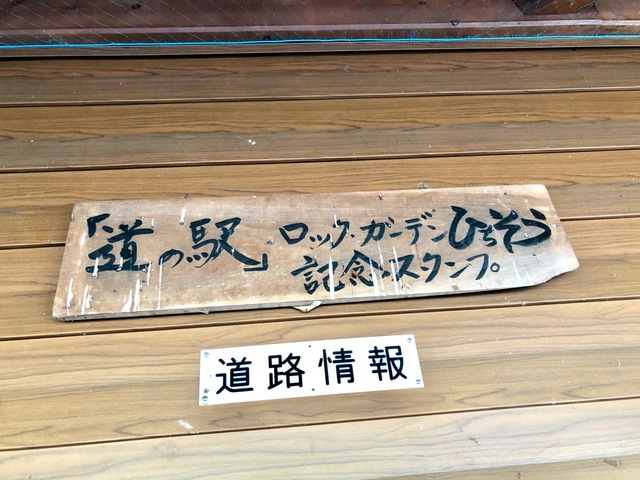 「道の駅」ロック・ガーデンひちそう
記念・スタンプ。
道路情報